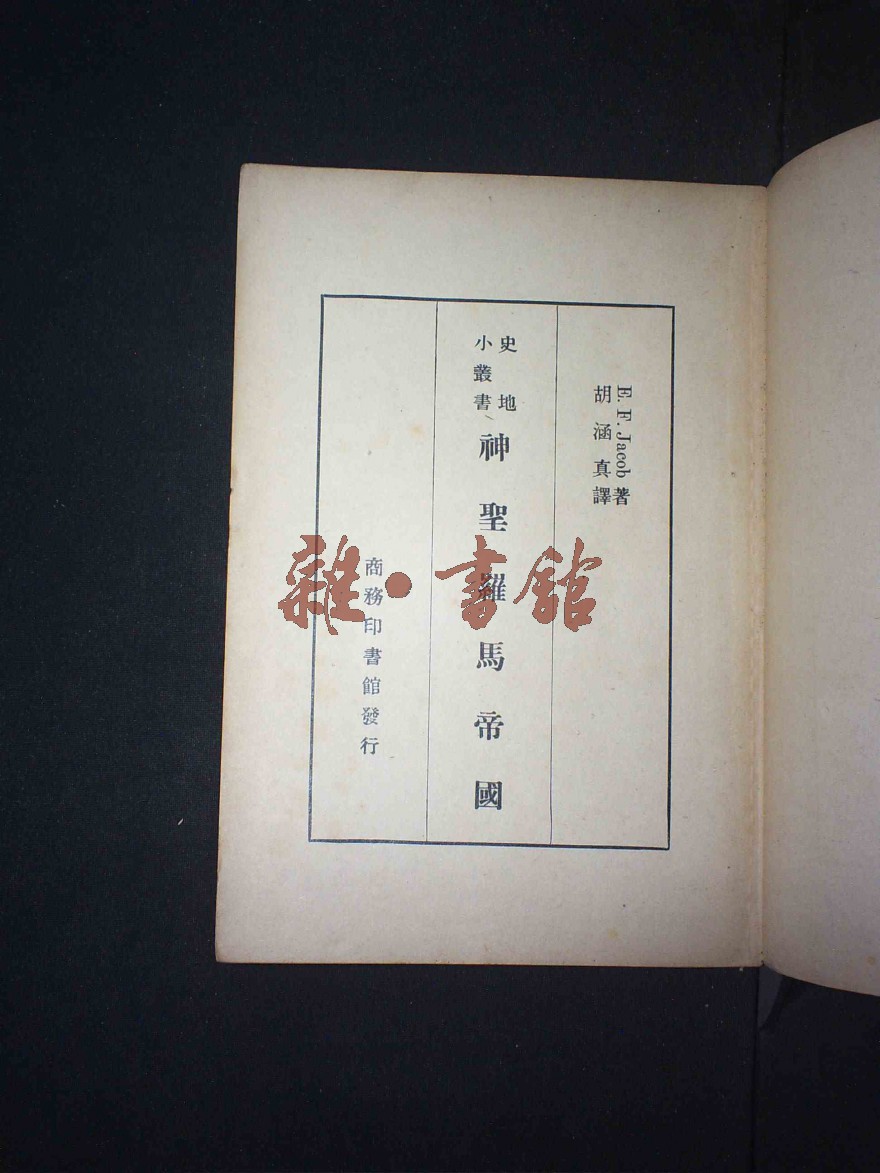 E. F. Jacob 著
胡涵真譯
史地
小叢書
神聖羅馬帝國
商務印書館發行
雜·書館